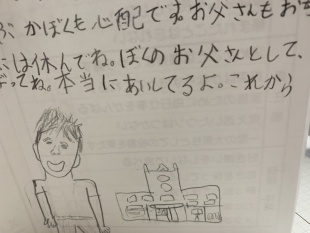 ぶかぼくも心配です。お父さんもお
には休んでね。ぼくのお父さんとして、
ってね。本当にあいしてるよ。これから